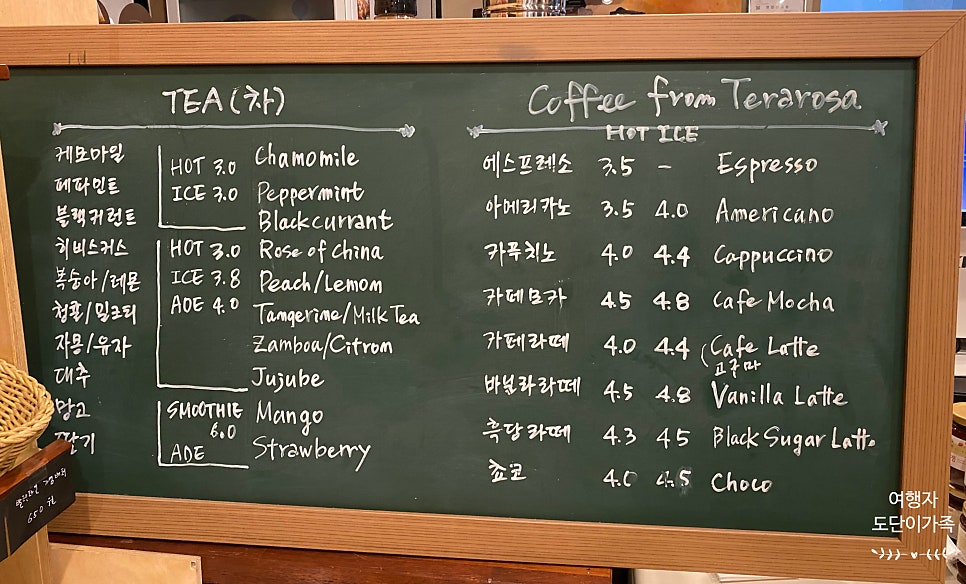 TEA(차)
케모마일
페파민트
블랙커런트
히비스커스
복숭아/레몬
청귤/밀크티
자몽/유자
대추
망고
딸기
HOT 3.0
ICE 3.0
HOT 3.0
ICE 3.8
ADE 4.0
SMOOTHIE
6.0
ADE
Chamomile
Peppermint
Blackcurrant
Rose of China
Peach/Lemon
Tangerine/Milk Tea
Zamboa/Citron
Jujube
Mango
Strawberry
Coffee from Terarosa
HOT ICE
에스프레소 3.5 - Espresso
아메리카노 3.5 4.0 Americano
카푸치노 4.0 4.4 Cappuccino
카페모카 4.5 4.8 Cafe Mocha
카페라떼 4.0 4.4 Cafe Latte
고구마
바닐라라떼 4.5 4.8 Vanilla Latte
흑당라떼 4.3 4.5 Black Sugar Latte
쵸코 4.0 4.5 Choco
650원
여행자
도단이가족